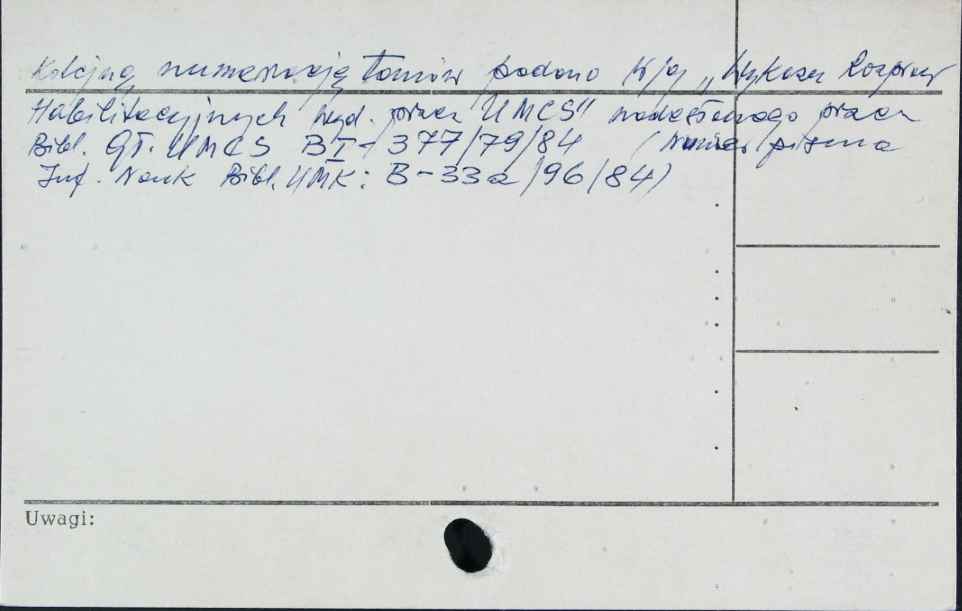 Kolejną numerację tomów podano wg „Wykazu Rozpraw
Habilitacyjnych wyd. przez UMCS" nadesłanego przez
Bibl. Gł. UMCS BI-377/79/84 (Numer pisma
Inf. Nauk Bibl. UMK: B-33a/96/84)
Uwagi: